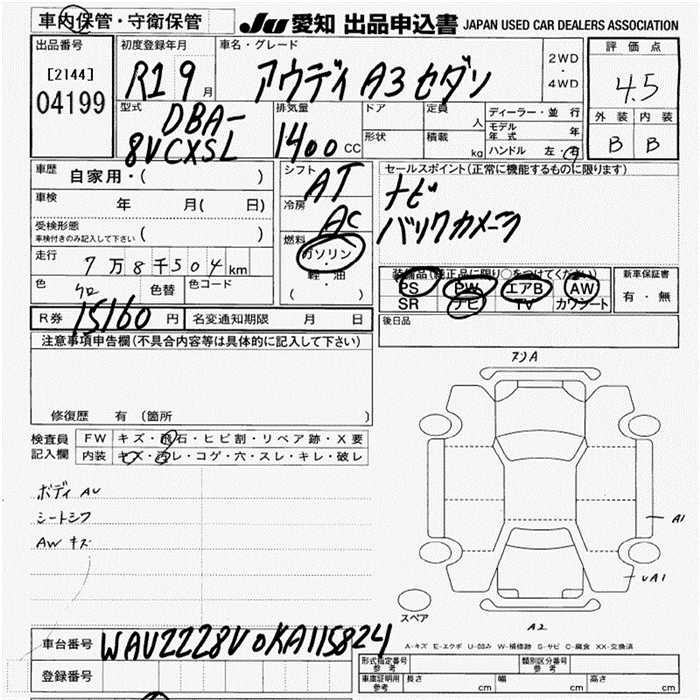 車内保管・守衛保管
JU 愛知 出品申込書 JAPAN USED CAR DEALERS ASSOCIATION
出品番号
[2144]
04199
初度登録年月
R1 9 月
車名・グレード
アウディ A3 セダン
2WD
・
4WD
評価点
4.5
外装 内装
B B
型式
DBA-
8VCXSL
排気量
1400 CC
ドア
形状
定員 人
積載 kg
ディーラー・並行
モデル年式 年
ハンドル 左・右
車歴
自家用・( )
車検
年 月( 日)
受検形態
車検付きのみ記入して下さい ( )
走行
7万8千504km
色
クロ
色替
色コード
シフト
AT
冷房
AC
燃料
ガソリン
・
軽・油
( )
セールスポイント(正常に機能するものに限ります)
ナビ
バックカメラ
装備品(純正品に限り○をつけてください)
PS PW エアB AW
SR ナビ TV カワシート
新車保証書
有・無
R券 15160 円
名変通知期限 月 日
後日品
注意事項申告欄(不具合内容等は具体的に記入して下さい)
修復歴 有 (箇所
検査員
記入欄
FW キズ・飛石・ヒビ割・リペア跡・X要
内装 キズ・汚レ・コゲ・穴・スレ・キレ・破レ
ボディ AU
シートシワ
AW キズ
A1
UA1
スペア
A2
A-キズ E-エクボ U-凹み W-補修跡 S-サビ C-腐食 XX-交換済
車台番号
WAUZZZ8V0KA115824
登録番号
形式指定番号
参考
類別区分番号
参考
車庫証明用
参考
長さ cm
幅 cm
高さ cm